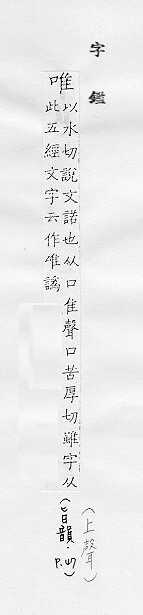 字鑑
唯以水切說文諾也从口隹聲口苦厚切雖字从
此五經文字云作唯譌
(旨韻·P.
(上聲)